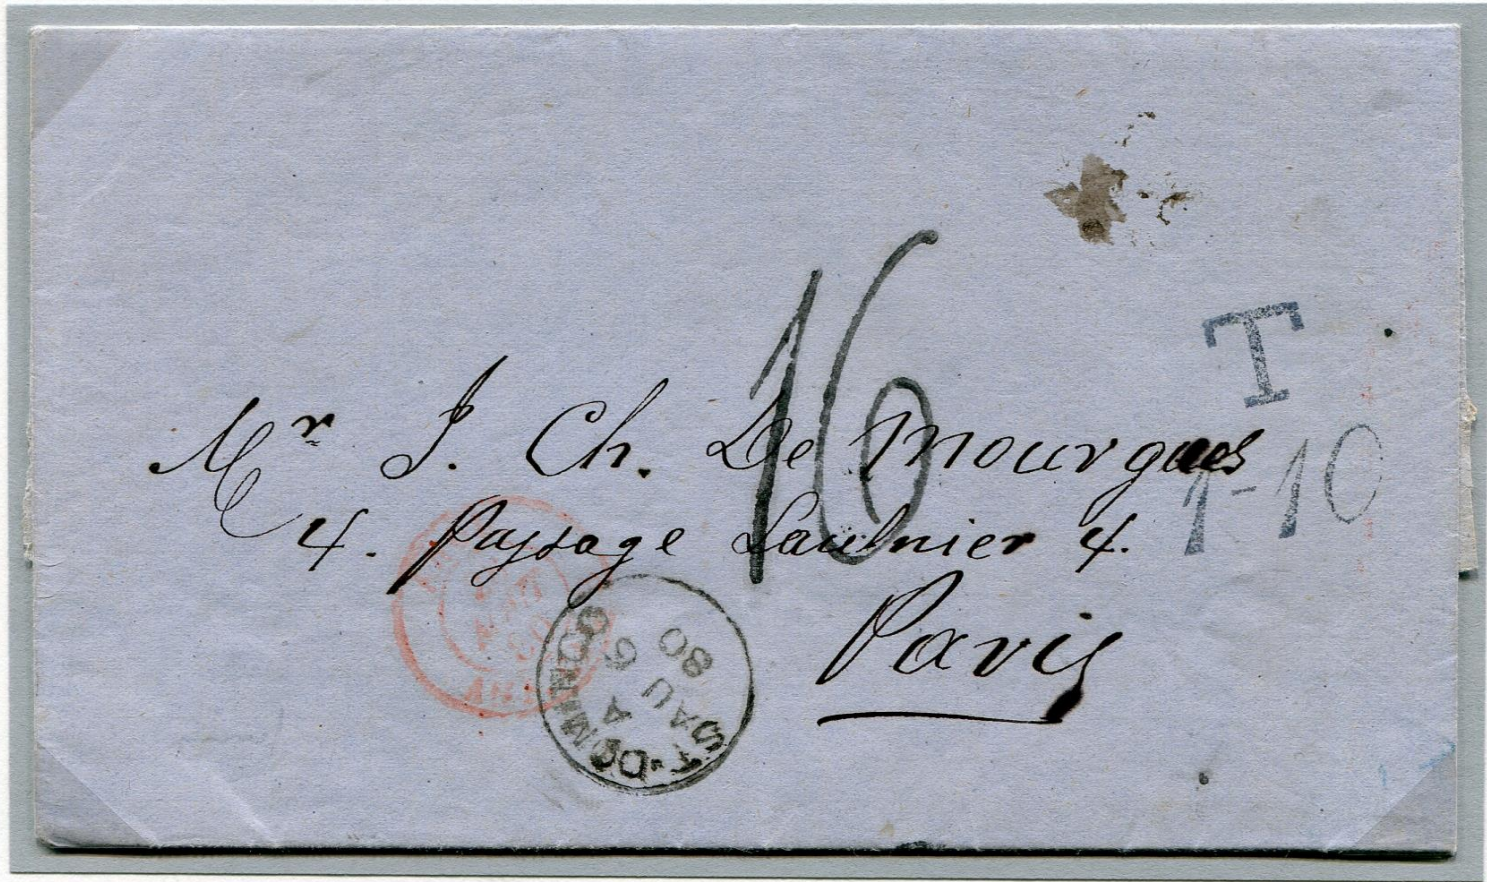 16
T
1-10
Mr J. Ch. De Mourgues
4. Passage Saulnier 4.
Paris
ST. DOMINGO
A
AU 6
80